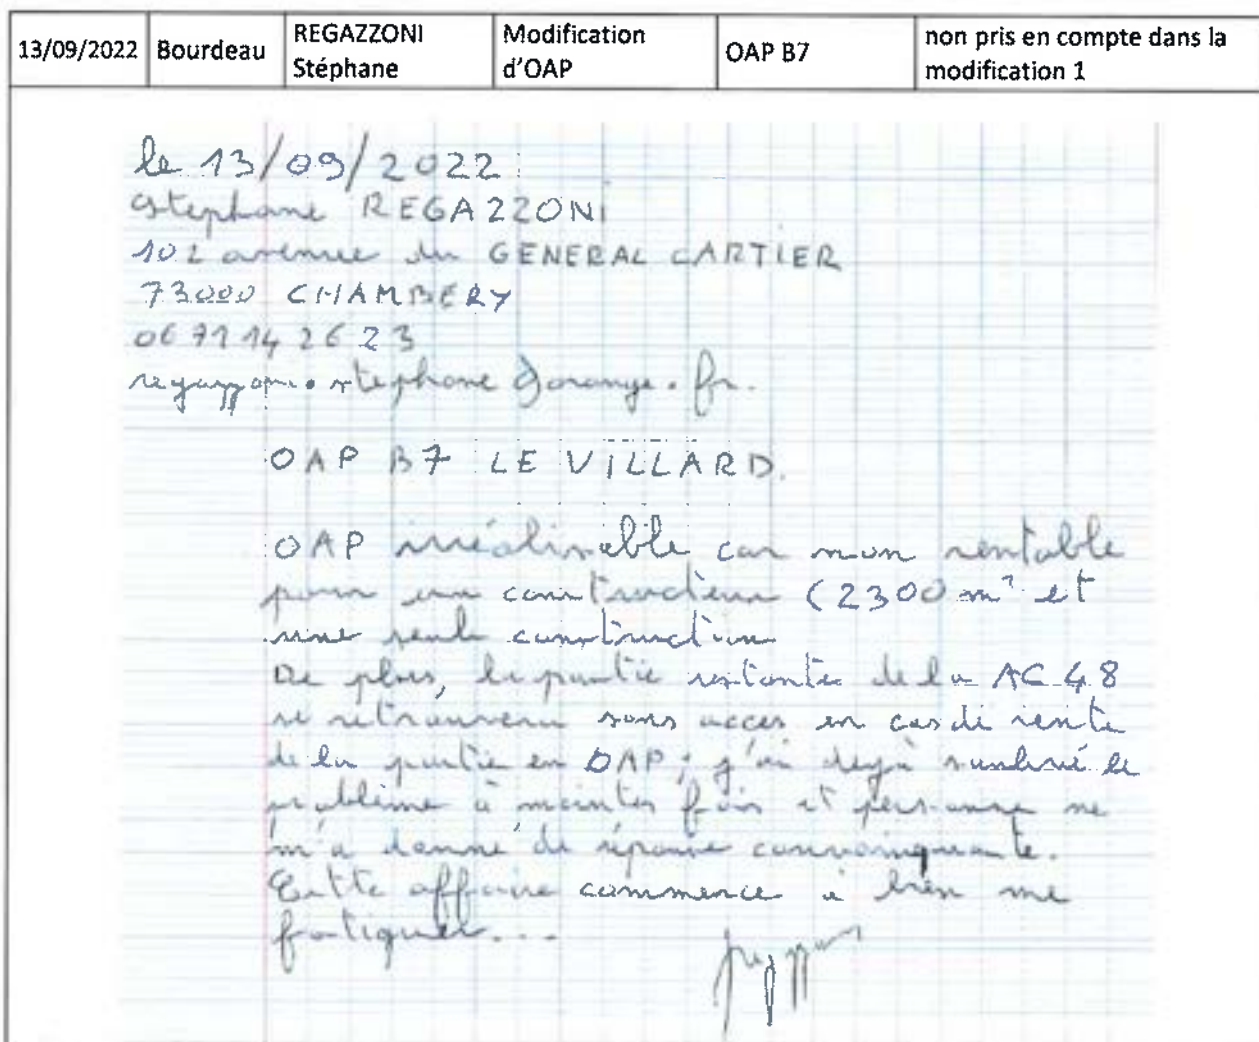 13/09/2022 Bourdeau REGAZZONI Stéphane Modification d'OAP OAP B7 non pris en compte dans la modification 1
le 13/09/2022
Stephane REGAZZONI
102 avenue du GENERAL CARTIER
73000 CHAMBERY
06 71 14 26 23
regazzoni.stephane@orange.fr.
OAP B7 LE VILLARD.
OAP irréalisable car non rentable
pour un constructeur (2300 m² et
une seule construction
De plus, la partie restante de la AC 48
se retrouvera sans acces en cas de vente
de la partie en OAP; j'ai dejà soulevé le
problème à maintes fois et personne ne
m'a donné de réponse convainquante.
Cette affaire commence à bien me
fatiguer...